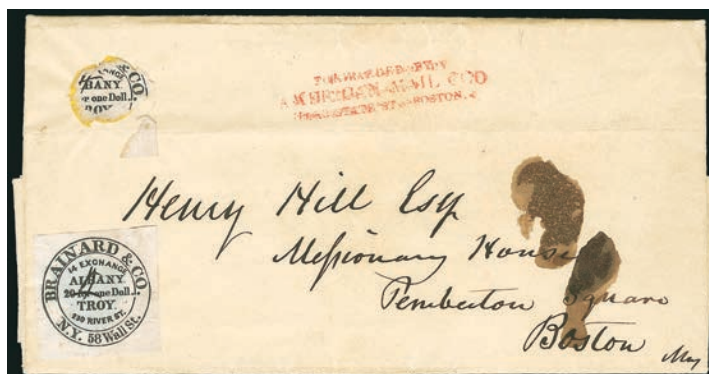 & CO
EXCHANGE
BANY
r one Doll.
ROY
FORWARDED BY
AMERICAN MAIL CO
STATE ST. BOSTON.
Henry Hill Esq
Missionary House
Pemberton Square
Boston
BRAINARD & CO.
14 EXCHANGE
ALBANY
20 for one Doll.
TROY.
230 RIVER ST.
N.Y. 58 Wall St.